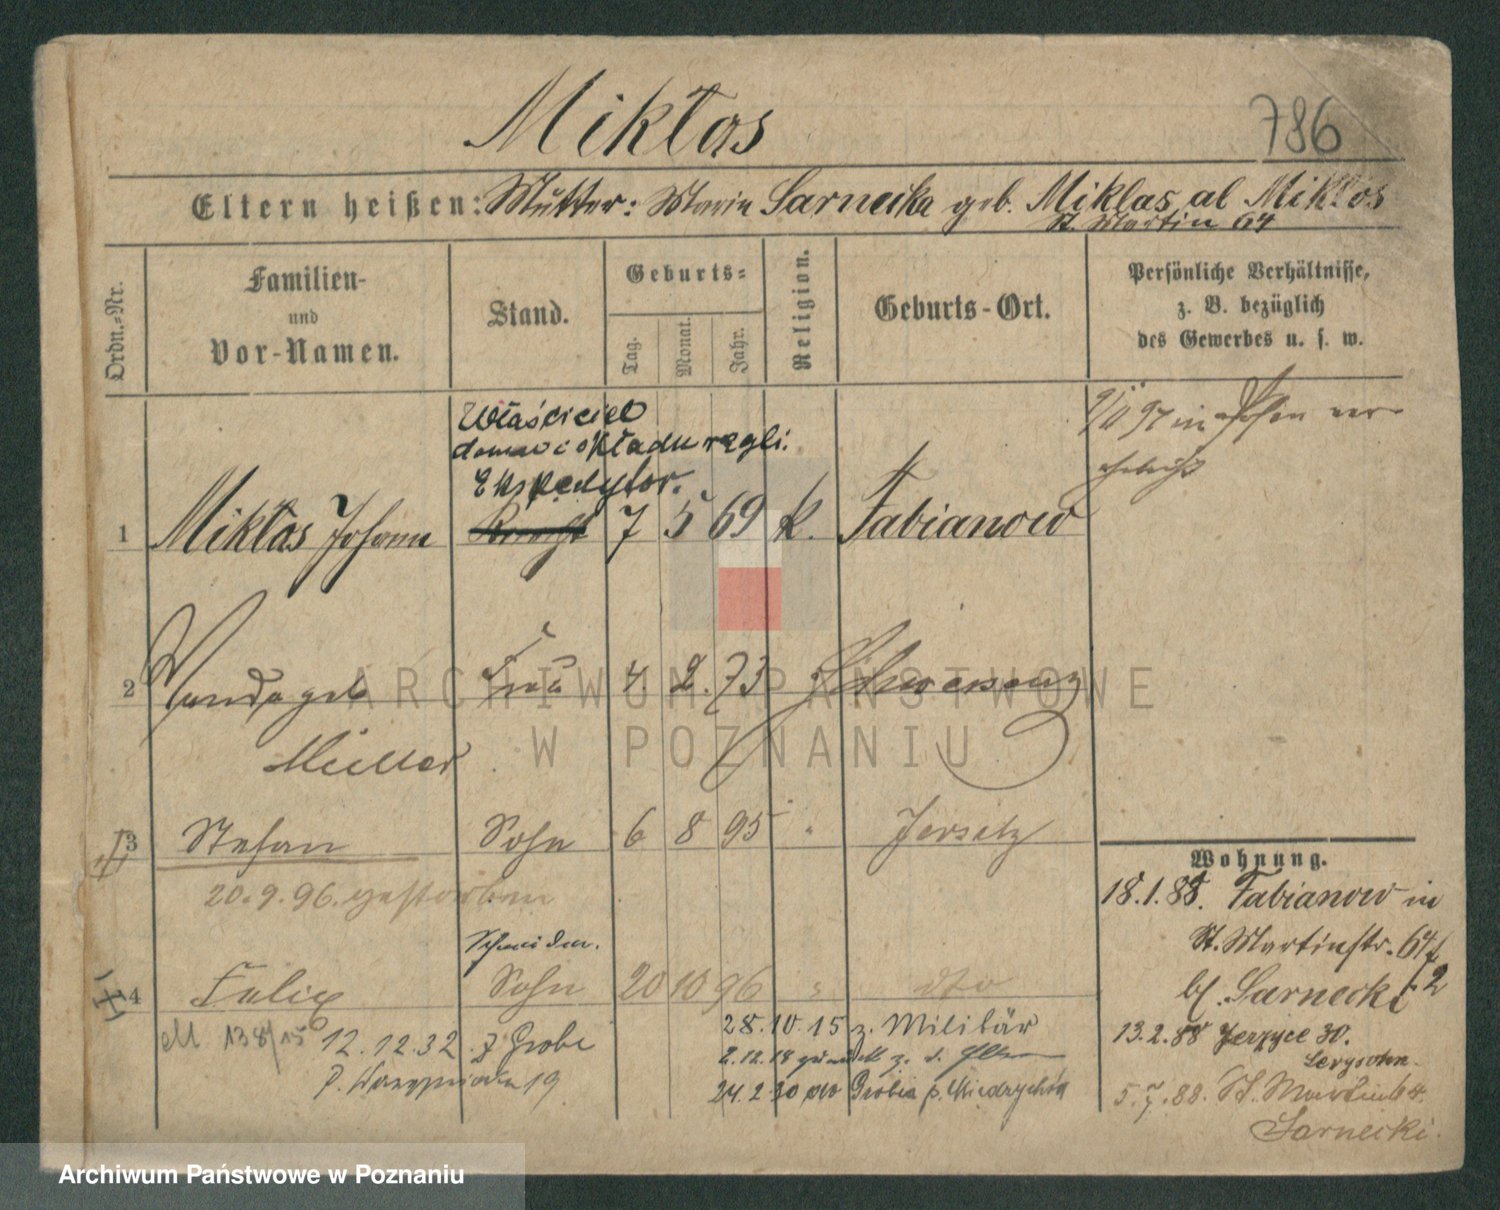 Mikłas
786
Eltern heißen: Mutter: Marie Sarnecka geb. Miklas al Mikłos
St. Martin 64
Ordn.-Nr.
Familien-
und
Vor-Namen.
Stand.
Geburts-
Tag.
Monat.
Jahr.
Religion.
Geburts-Ort.
Persönliche Verhältnisse,
z. B. bezüglich
des Gewerbes u. s. w.
Właściciel
domu i składu węgli.
Ekspedytor.
97 in Posen ver-
ehelicht
1 Mikłas Johann Knecht 7 5 69 k. Fabianowo
2 Wanda geb Frau 4 2. 73 Schwersenz
Müller
3 Stefan Sohn 6 8 95 " Jersitz
20.9.96. gestorben
Schneider.
4 Felix Sohn 20 10 96 " dto
M 138/15 12.12.32 z Grobe
19
28.10.15 z. Militär
2.12.18 zurück z. d.
24.2.30 do Grobia p. Miedzychód
Wohnung.
18.1.88. Fabianowo in
St. Martinstr. 64
bf. Sarnecki
13.2.88 Jerzyce 30.
5.7.88. St. Martin 64.
Sarnecki.
ARCHIWUM PAŃSTWOWE
W POZNANIU
Archiwum Państwowe w Poznaniu